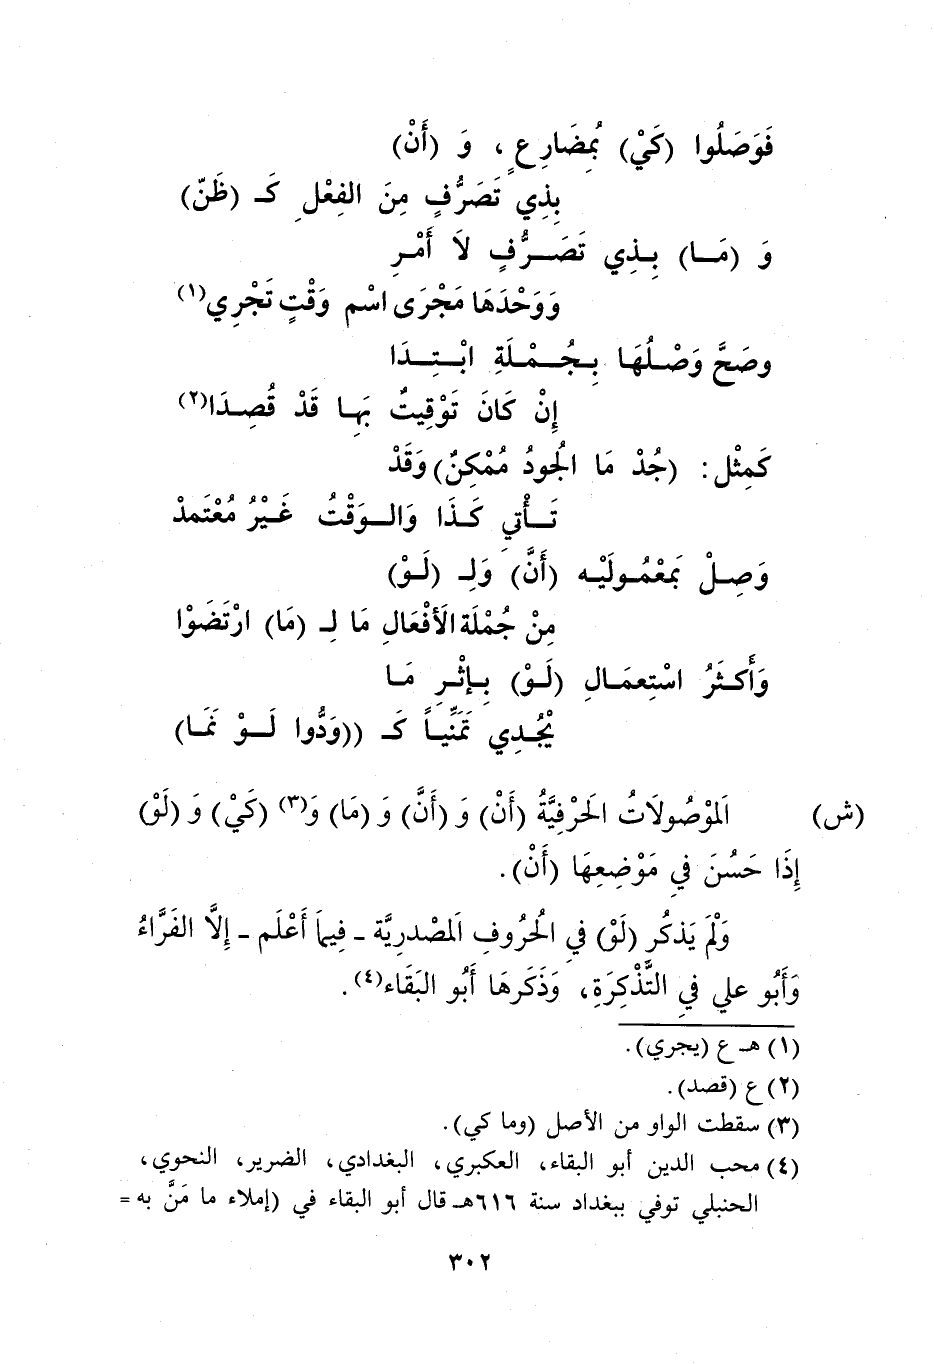 فَوَصَلُوا (كَيْ) بُمِضَارِعٍ ، وَ (أَنْ)
بِذِي تَصَرُّفٍ مِنَ الفِعْلِ كَـ (ظَنّ)
وَ (مَـا) بِـذِي تَصَـرُّفٍ لاَ أَمْـرِ
وَوَحْدَهَا مَجْرَى اسْمِ وَقْتٍ تَجْرِي(١)
وصَحَّ وَصْـلُهَا بِـجُـمْـلَةِ ابْـتِـدَا
إِنْ كَانَ تَوْقِيتٌ بِهَـا قَدْ قُصِـدَا(٢)
كَمِثْلِ : (جُدْ مَا الجُودُ مُمْكِنٌ) وَقَدْ
تَـأْتي كَـذَا وَالـوَقْتُ غَيْـرُ مُعْتَمدْ
وَصِـلْ بَمَعْمُـولَيْـه (أَنَّ) وَلِـ (لَـوْ)
مِنْ جُمْلَة الَأفْعَالِ مَا لِـ (مَا) ارْتَضَوْا
وَأَكـثَرُ اسْتِعمَـالِ (لَـوْ) بِـإثْـرِ مَـا
يُجْـدِي تَمَنِّيـاً كَـ ((وَدُّوا لَـوْ نَمَا)
(ش) اَلمَوْصُولَاتُ الحَرْفِيَّةُ (أَنْ) وَ (أَنَّ) وَ (مَا) وَ(٣) (كَيْ) وَ (لَوْ)
إِذَا حَسُنَ فِي مَوْضِعِهَا (أَنْ).
وَلَمْ يَذكُر (لَوْ) فيِ الحُرُوفِ اَلمصْدريَّة ـ فِيمَا أَعْلَم ـ إِلَّا الفَرَّاءُ
وَأَبُو علي فِي التَّذْكِرَةِ، وَذَكَرهَا أَبُو البَقَاء(٤).
(١) هـ ع (يجري).
(٢) ع (قصد).
(٣) سقطت الواو من الأصل (وما كي).
(٤) محب الدين أبو البقاء، العكبري، البغدادي، الضرير، النحوي،
الحنبلي توفي ببغداد سنة ٦١٦هـ قال أبو البقاء في (إملاء ما مَنَّ به =
٣٠٢